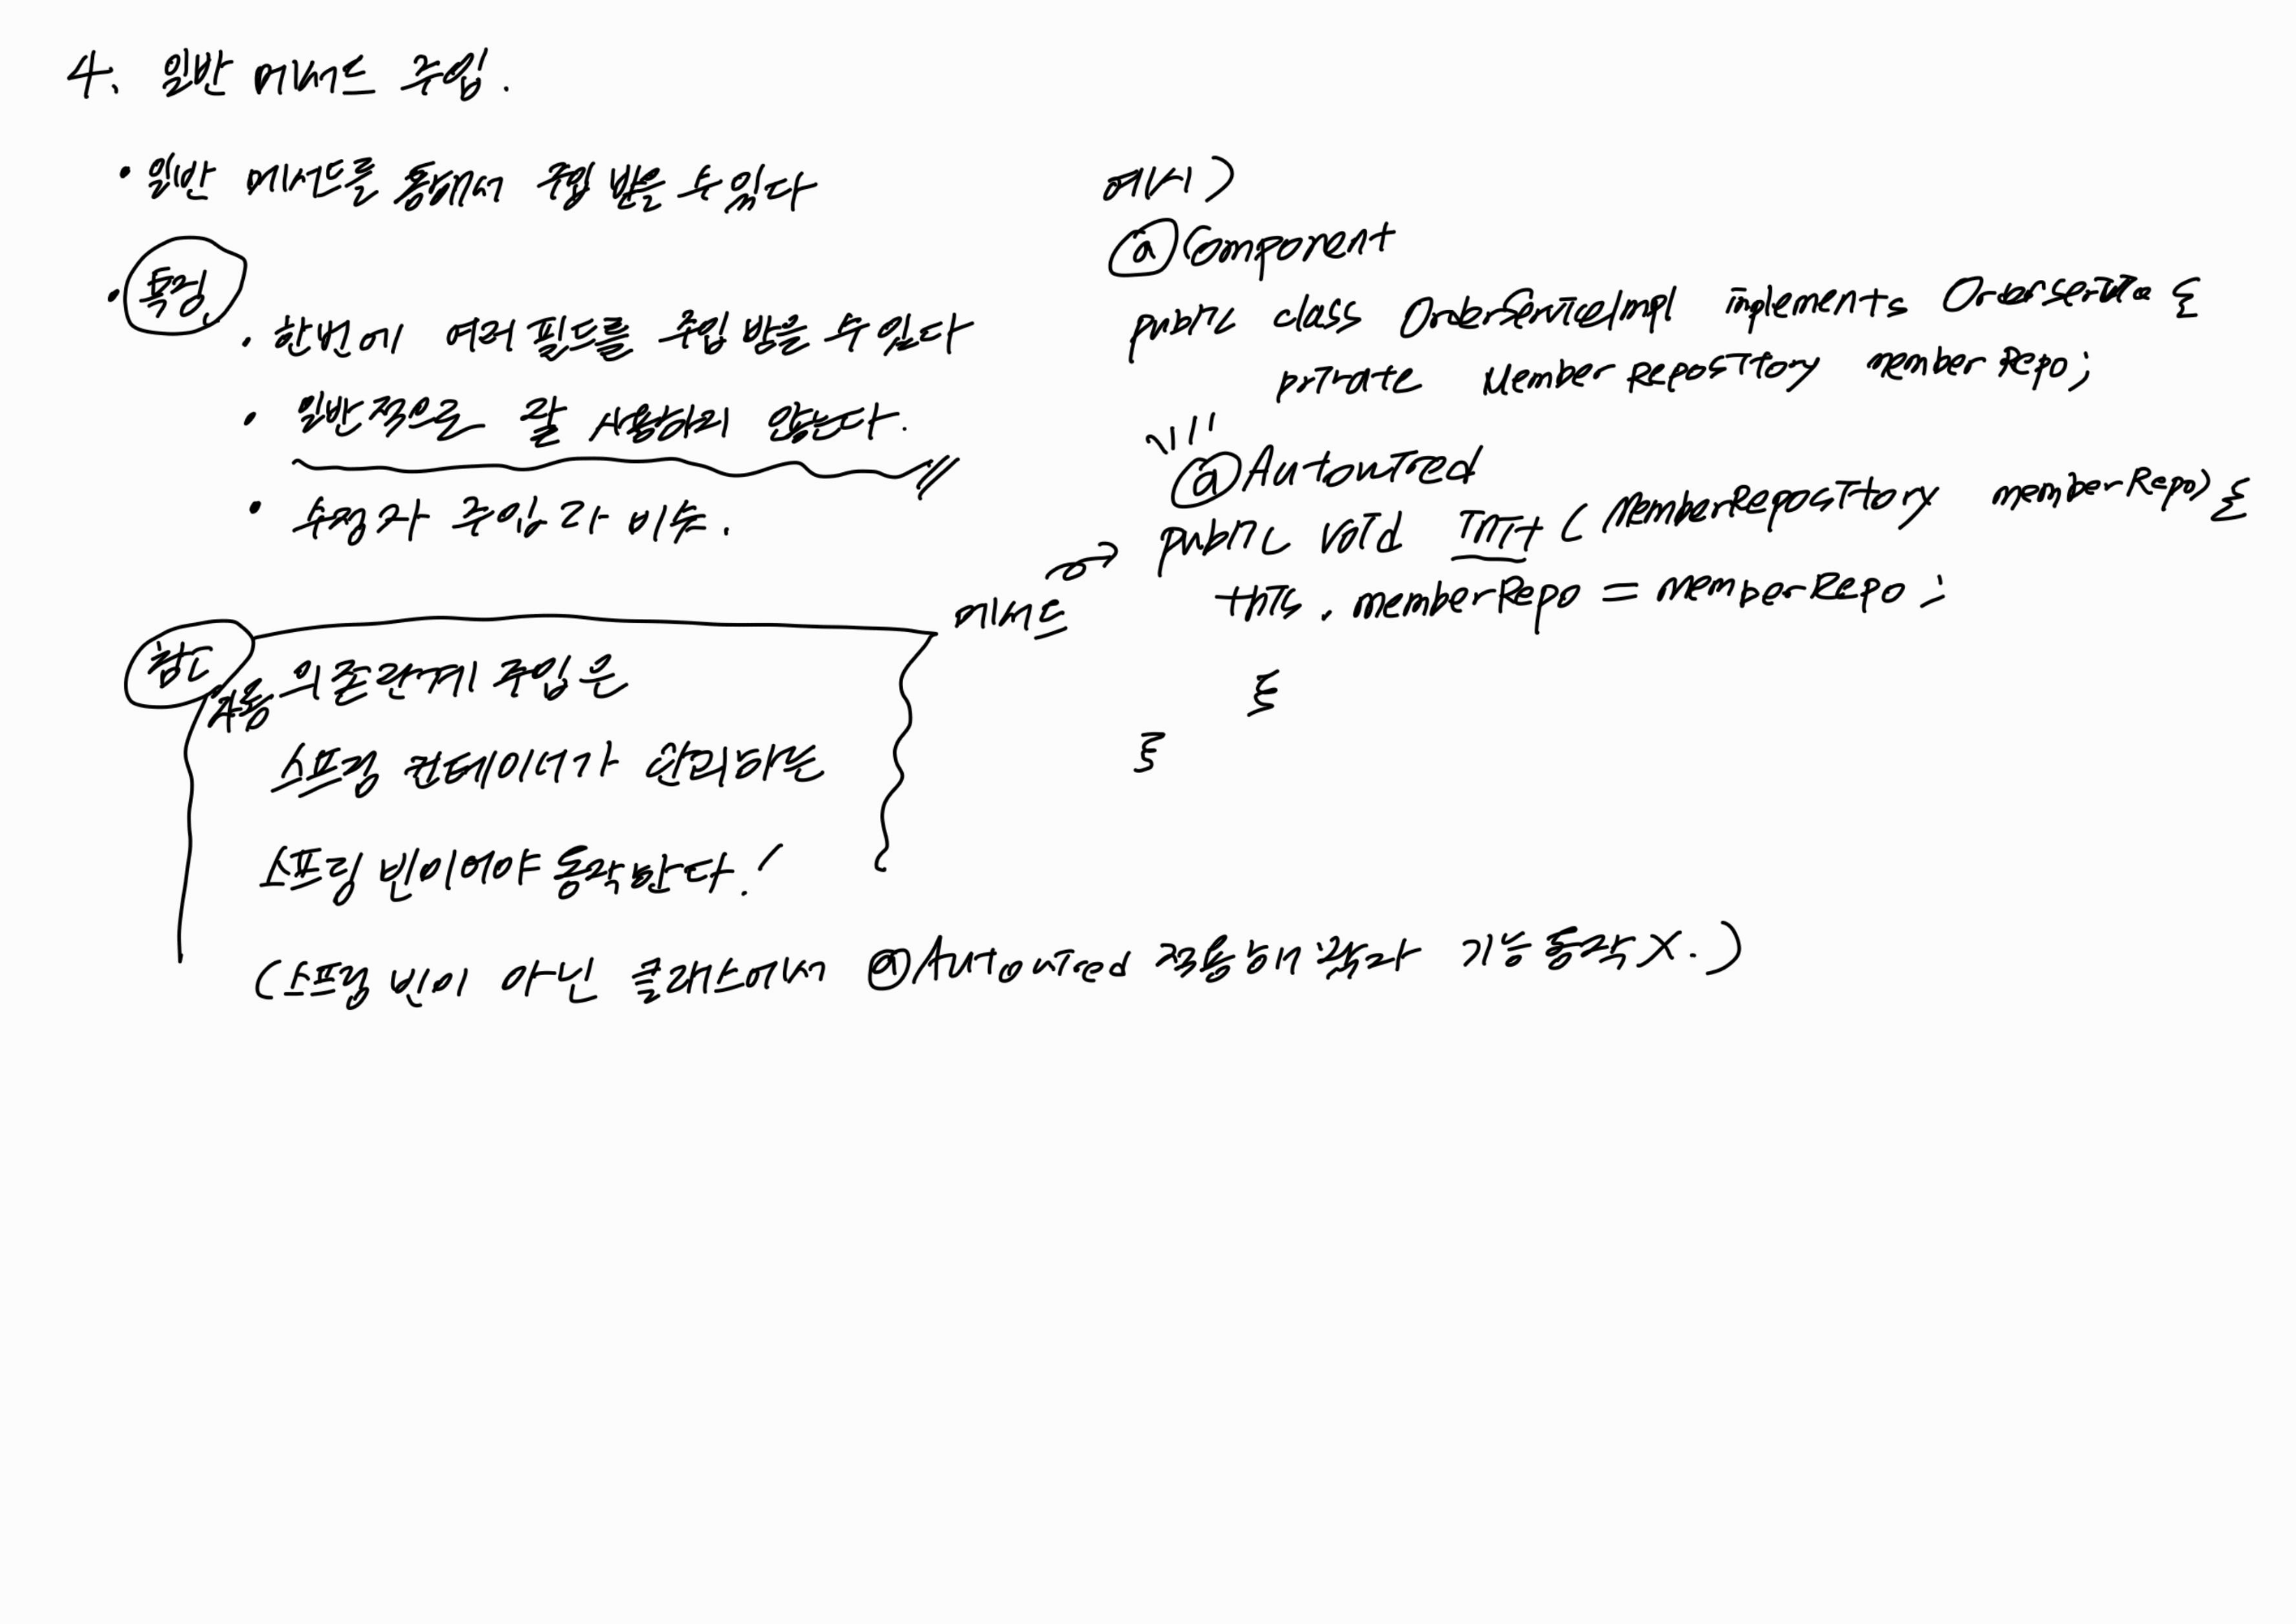 4. 일반 메서드 주입.
• 일반 메서드를 통해서 주입 받을 수 있다
• 특징
• 한번에 여러 필드를 주입 받을 수 있다
• 일반적으로 잘 사용하지 않는다.
• 수정자 주입과 비슷.
참고
자동 의존관계 주입은
스프링 컨테이너가 관리하는
스프링 빈이어야 동작한다!
(스프링 빈이 아닌 클래스에서 @Autowired 적용해 봤자 기능 동작 X.)
예시)
@Component
public class OrderServiceImpl implements OrderService {
private MemberRepository memberRepo;
@Autowired
메서드 → public void init (MemberRepository memberRepo) {
this.memberRepo = memberRepo;
}
}